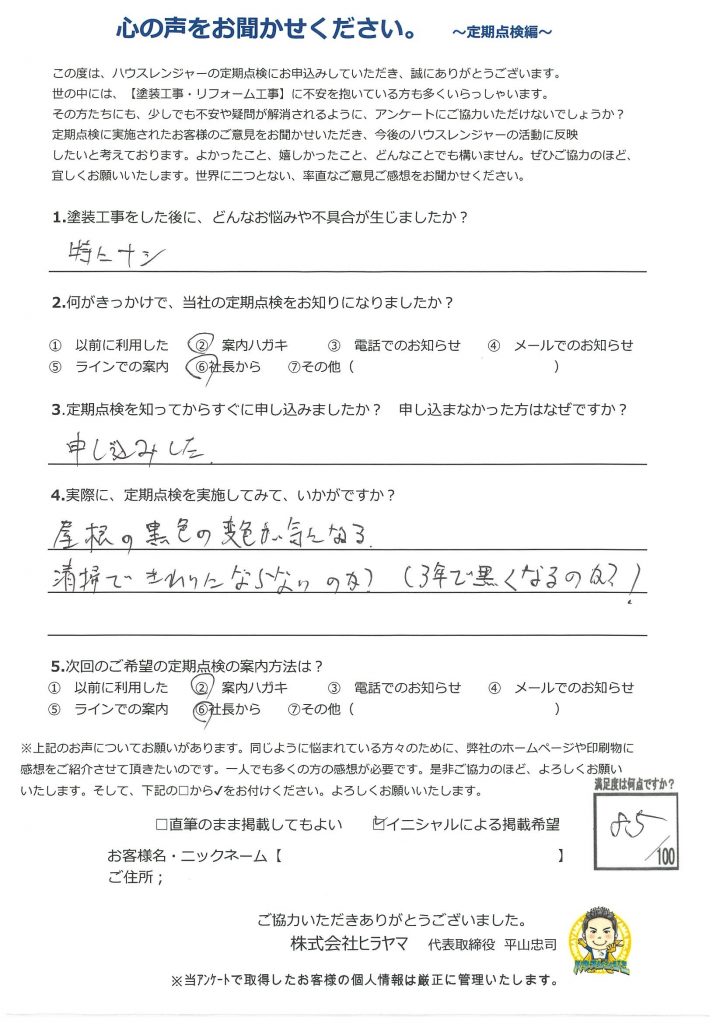 心の声をお聞かせください。 ～定期点検編～
この度は、ハウスレンジャーの定期点検にお申込みしていただき、誠にありがとうございます。
世の中には、【塗装工事・リフォーム工事】に不安を抱いている方も多くいらっしゃいます。
その方たちにも、少しでも不安や疑問が解消されるように、アンケートにご協力いただけないでしょうか？
定期点検に実施されたお客様のご意見をお聞かせいただき、今後のハウスレンジャーの活動に反映
したいと考えております。よかったこと、嬉しかったこと、どんなことでも構いません。ぜひご協力のほど、
宜しくお願いいたします。世界に二つとない、率直なご意見ご感想をお聞かせください。
1.塗装工事をした後に、どんなお悩みや不具合が生じましたか？
特にナシ
2.何がきっかけで、当社の定期点検をお知りになりましたか？
① 以前に利用した ② 案内ハガキ ③ 電話でのお知らせ ④ メールでのお知らせ
⑤ ラインでの案内 ⑥社長から ⑦その他（ ）
3.定期点検を知ってからすぐに申し込みましたか？ 申し込まなかった方はなぜですか？
申し込みした.
4.実際に、定期点検を実施してみて、いかがですか？
屋根の黒色の変色が気になる.
清掃できれいにならないのか？（3年で黒くなるのか？！
5.次回のご希望の定期点検の案内方法は？
① 以前に利用した ② 案内ハガキ ③ 電話でのお知らせ ④ メールでのお知らせ
⑤ ラインでの案内 ⑥社長から ⑦その他（ ）
※上記のお声についてお願いがあります。同じように悩まれている方々のために、弊社のホームページや印刷物に
感想をご紹介させて頂きたいのです。一人でも多くの方の感想が必要です。是非ご協力のほど、よろしくお願い
いたします。そして、下記の□から✓をお付けください。よろしくお願いいたします。
満足度は何点ですか？
85
/100
□直筆のまま掲載してもよい ☑イニシャルによる掲載希望
お客様名・ニックネーム【 】
ご住所；
ご協力いただきありがとうございました。
株式会社ヒラヤマ 代表取締役 平山忠司
※当アンケートで取得したお客様の個人情報は厳正に管理いたします。